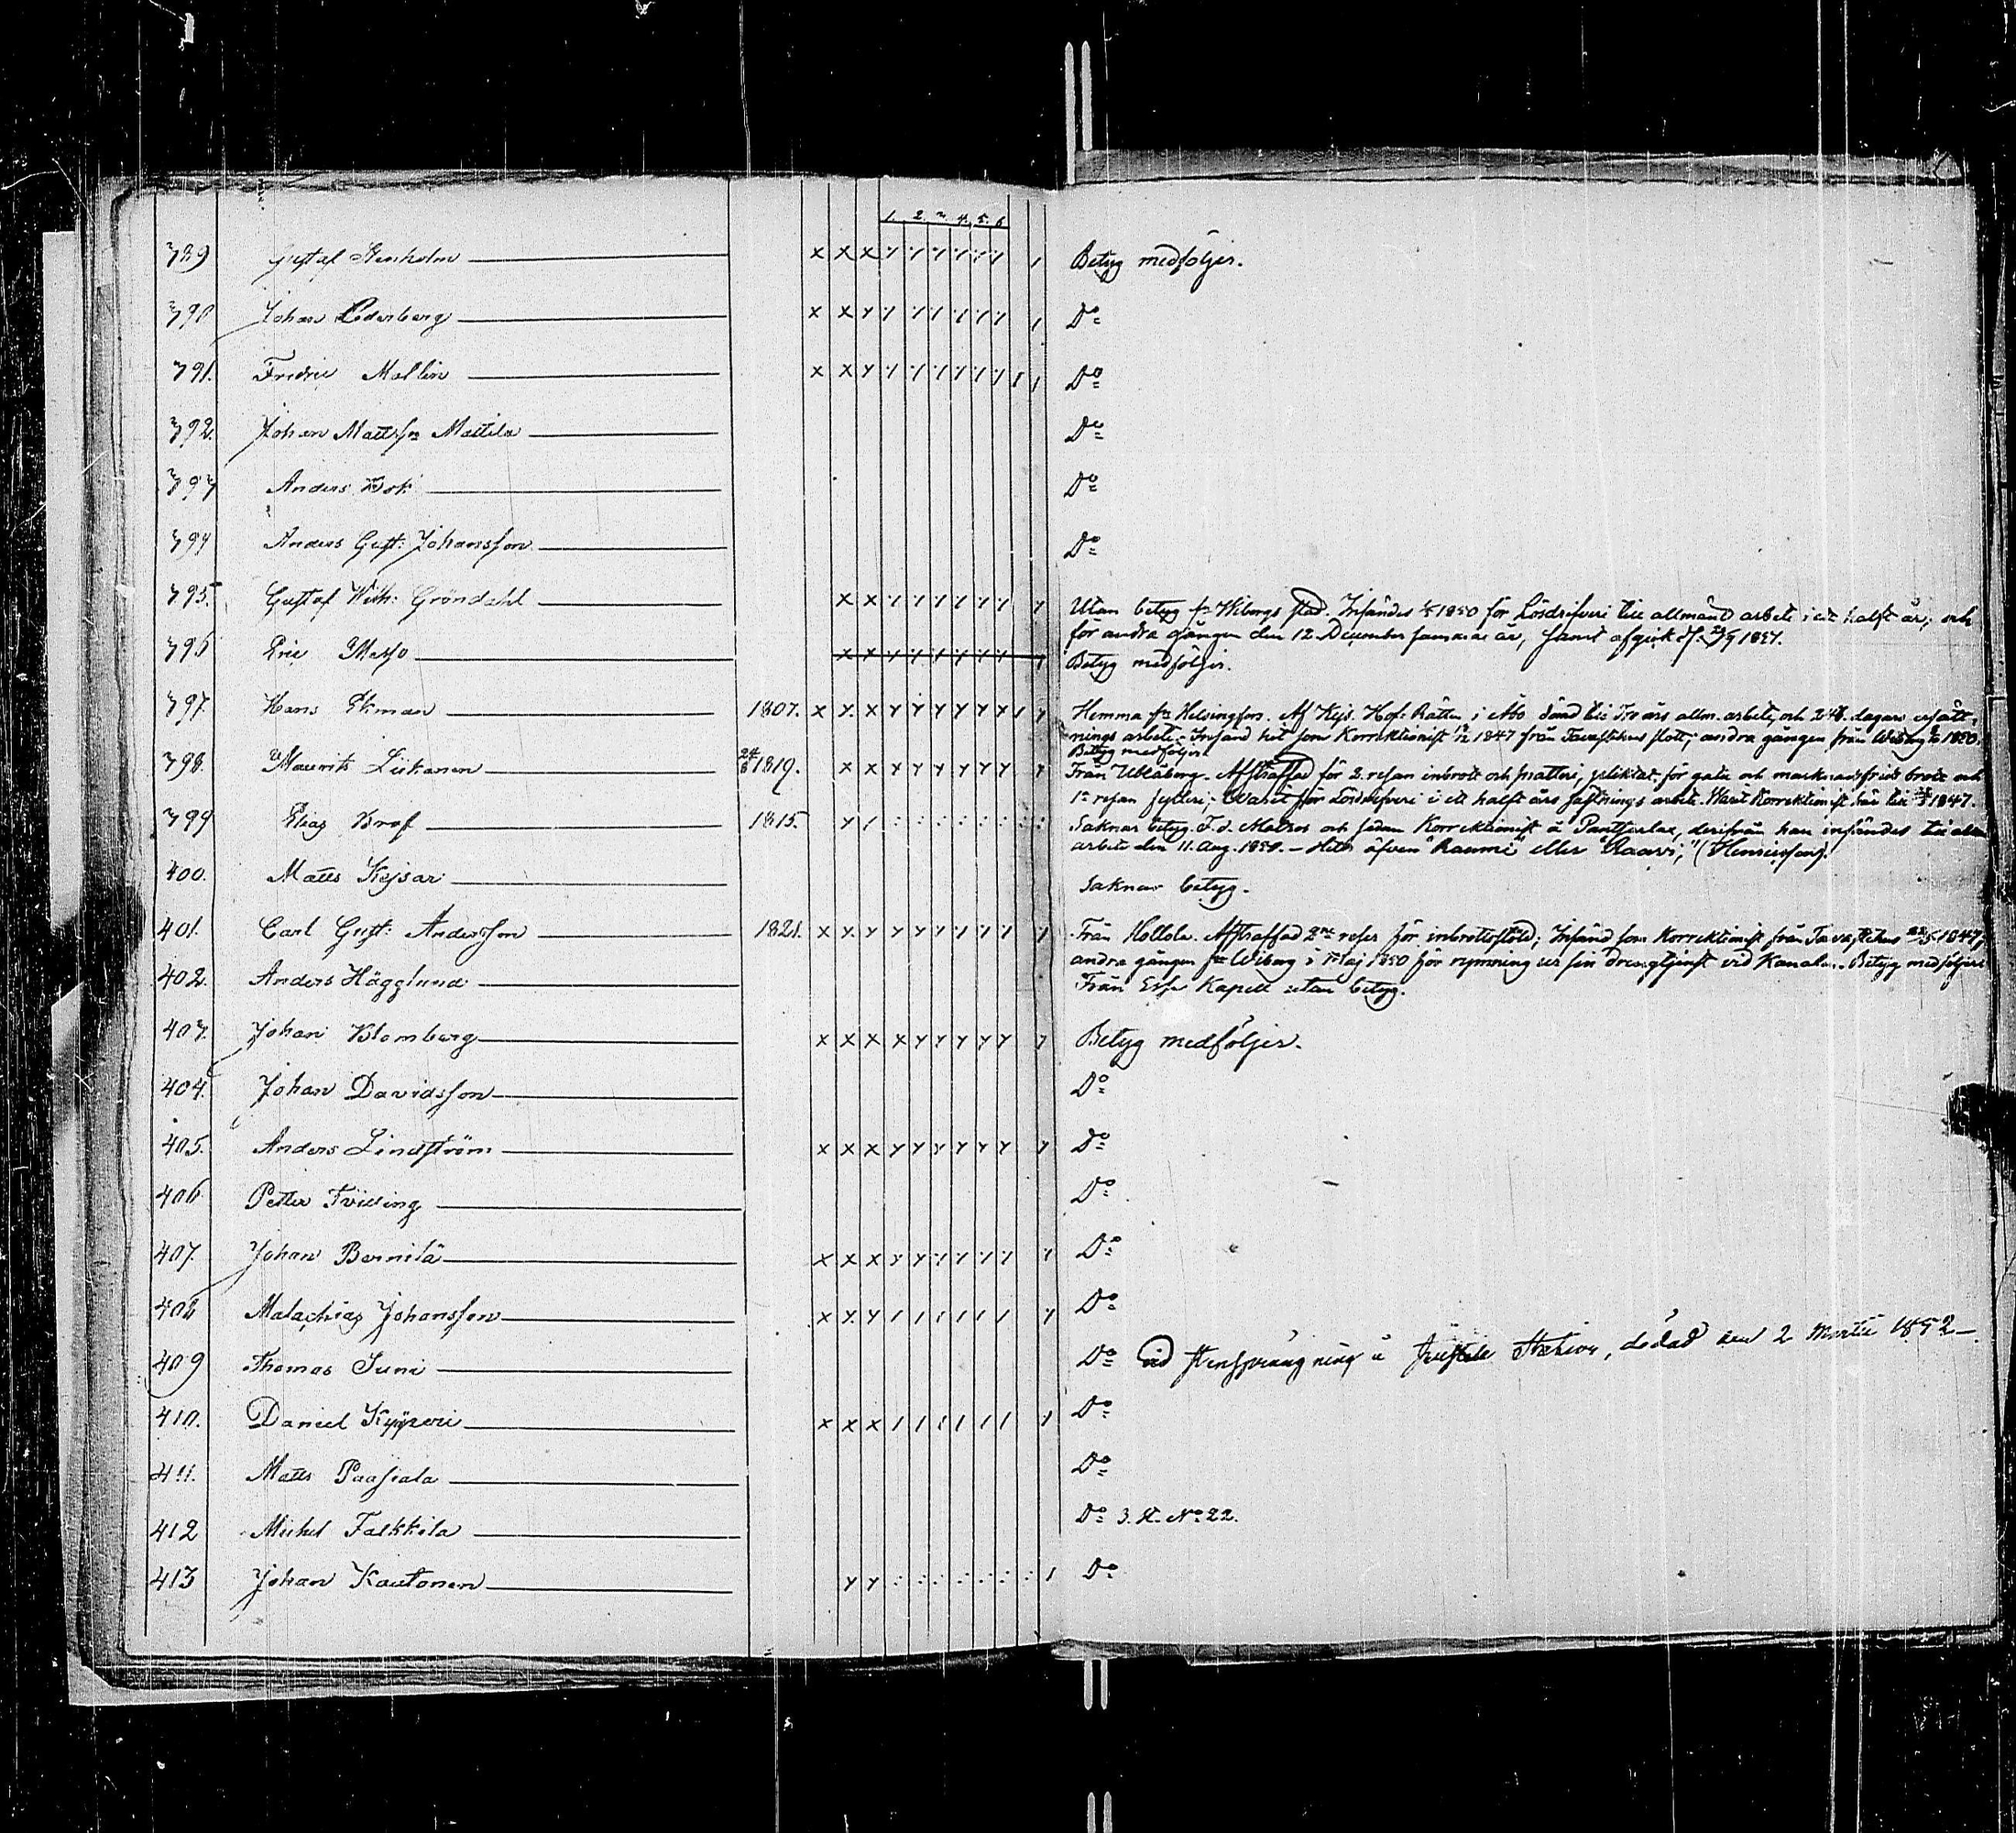 1. 2. 3. 4. 5. 6
389 Gustaf Stenholm x x x Betyg medföljer.
390 Johan Cederberg x x Do
391. Fredric Mallin x x Do
392. Johan Mattsson Mattila Do
393 Anders Kok Do
394 Anders Gust: Johansson Do
395. Gustaf Wilh: Gröndahl x x Utan betyg fr Wiborgs stad. Insändes 1850 för Lösdrifveri till allmänt arbete i ett halft år; och
för andra gången den 12 December samma år, samt afgick
396 Eric Betyg medföljer.
397. Hans Ekman 1807. x x Hemma fr Helsingfors. Af Kejs. Hof-Rätten i Åbo dömd till Tre års allm. arbete, och 248. dagars ersätt-
nings arbete. Insänd hit som Korrektionist 1847 från Tavastehus slott; andra gången från Wiborg 1850.
Betyg medföljer.
398. Maurits Liikanen 24/8 1819. x x Från Uleåborg. Afstraffad för 2. resan inbrott och snatteri, för gatu och marknadsfrids brott och
1a resan fylleri; Warit för Lösdrifveri i ett halft års fästnings arbete. Warit Korrektionist här till 1847.
399 Elias Brof 1815. Saknar betyg. F.d. Matros och sedan Korrektionist å Pantsarlax, derifrån han insändes till allm
arbete den 11. Aug. 1850. – Heter äfven "Raumi" eller "Raavi," (Henricsson).
400. Matts Kejsar Saknar betyg.
401. Carl Gust: Andersson 1821. x x Från Hollola. Afstraffad 2ne resor för inbrottsstöld; Insänd som Korrektionist från Tavastehus 1847;
andra gången fr Wiborg i Maj 1850 för rymning ur sin drengtjenst vid Kanalen. Betyg medföljer
402. Anders Hägglund Från Esse Kapell utan betyg.
403. Johan Blomberg x x x x Betyg medföljer.
404. Johan Davidsson Do
405. Anders Lindström x x x Do
406 Petter Tvilling Do
407. Johan Bernitä x x x Do
408 Malachias Johansson x Do
409 Thomas Suni Do vid stensprängning å Station, dödad den 2 Martii 1852 –
410. Daniel Kyyperi x x x Do
411. Matts Paasiala Do
412 Michel Talkkila Do 3. K. No 22.
413 Johan Kautonen Do